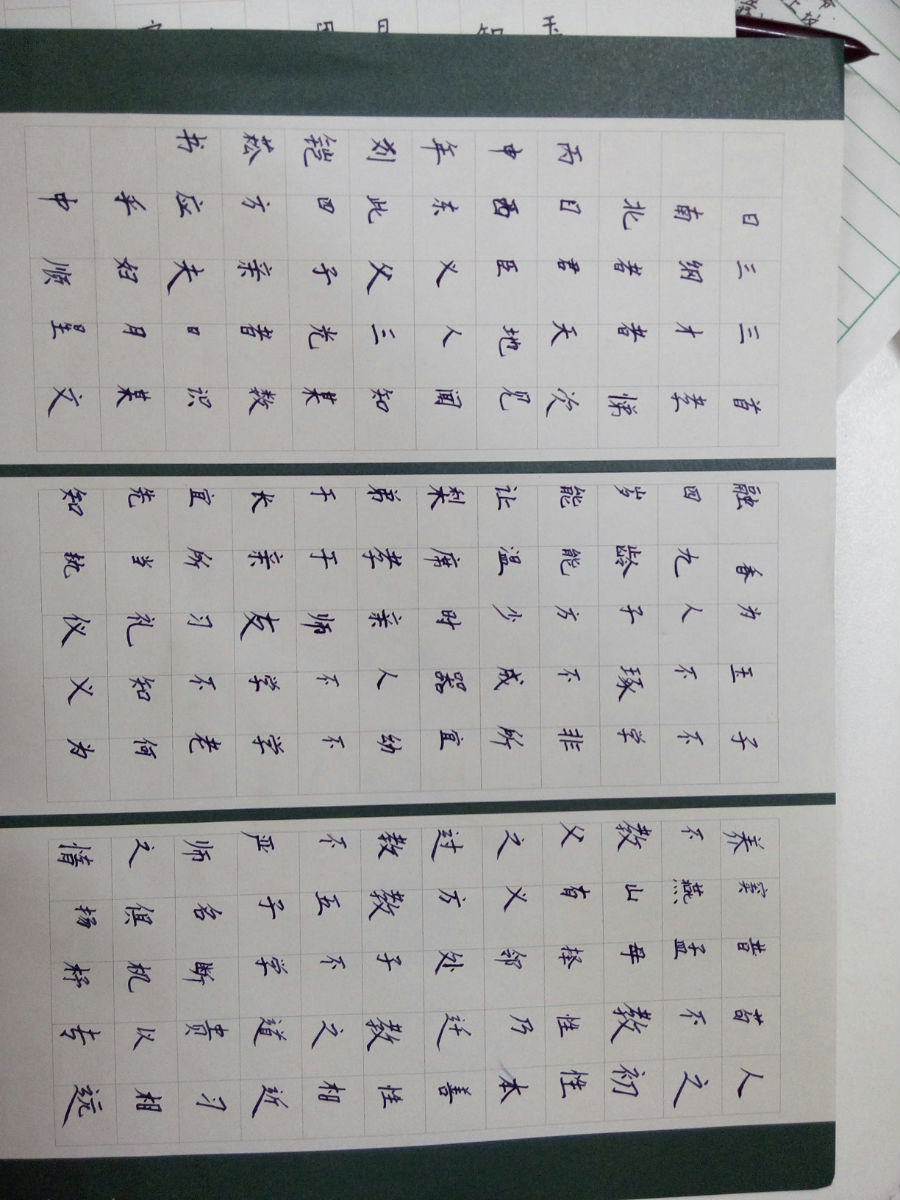 人之初性本善性相近习相远
苟不教性乃迁教之道贵以专
昔孟母择邻处子不学断机杼
窦燕山有义方教五子名俱扬
养不教父之过教不严师之惰
子不学非所宜幼不学老何为
玉不琢不成器人不学不知义
为人子方少时亲师友习礼仪
香九龄能温席孝于亲所当执
融四岁能让梨弟于长宜先知
首孝悌次见闻知某数识某文
三才者天地人三光者日月星
三纲者君臣义父子亲夫妇顺
日南北日西东此四方应乎中
丙申年刘铠菘书